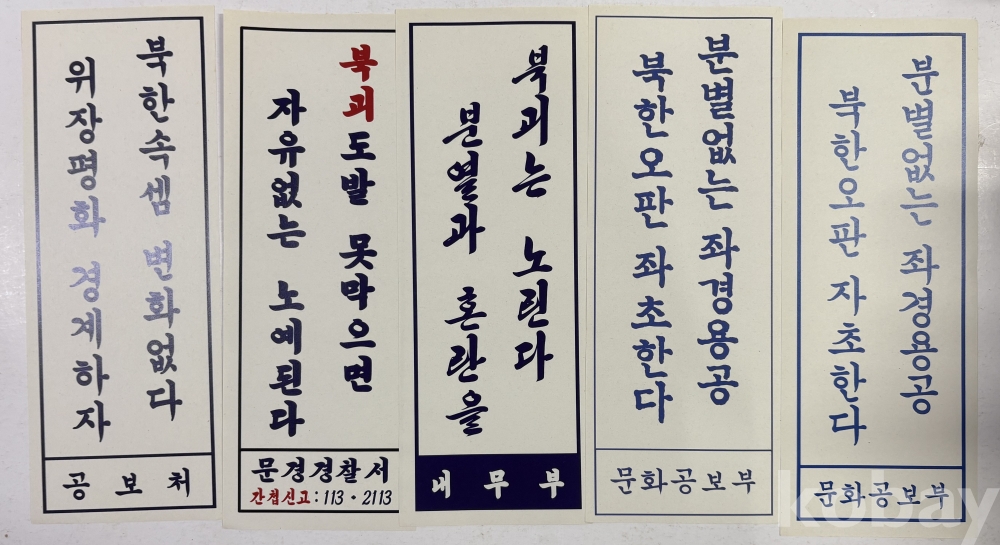 북한속셈 변화없다
위장평화 경계하자
공보처
북괴도발 못막으면
자유없는 노예된다
문경경찰서
간첩신고:113·2113
북괴는 노린다
분열과 혼란을
내무부
분별없는 좌경용공
북한오판 좌초한다
문화공보부
분별없는 좌경용공
북한오판 자초한다
문화공보부
kobay